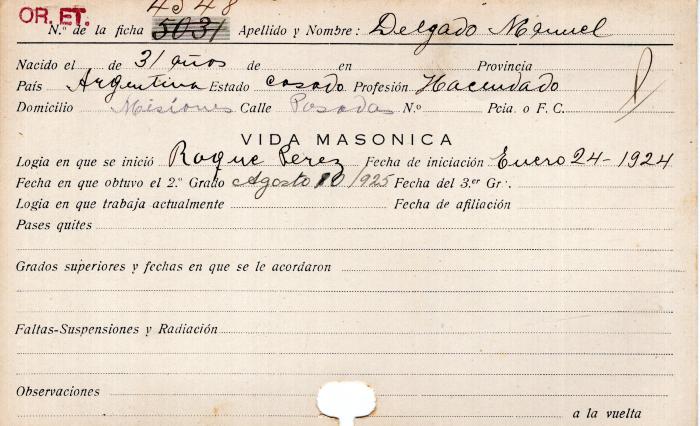 OR. ET.
4548
N.º de la ficha 5031 Apellido y Nombre: Delgado Manuel
Nacido el de 31 años de en Provincia
País Argentina Estado casado Profesión Hacendado
Domicilio Misiones Calle Posadas N.º Pcia. o F. C.
VIDA MASONICA
Logia en que se inició Roque Perez Fecha de iniciación Enero 24-1924
Fecha en que obtuvo el 2.º Grado Agosto 10/925 Fecha del 3.er Gr∴
Logia en que trabaja actualmente Fecha de afiliación
Pases quites
Grados superiores y fechas en que se le acordaron
Faltas-Suspensiones y Radiación
Observaciones
a la vuelta